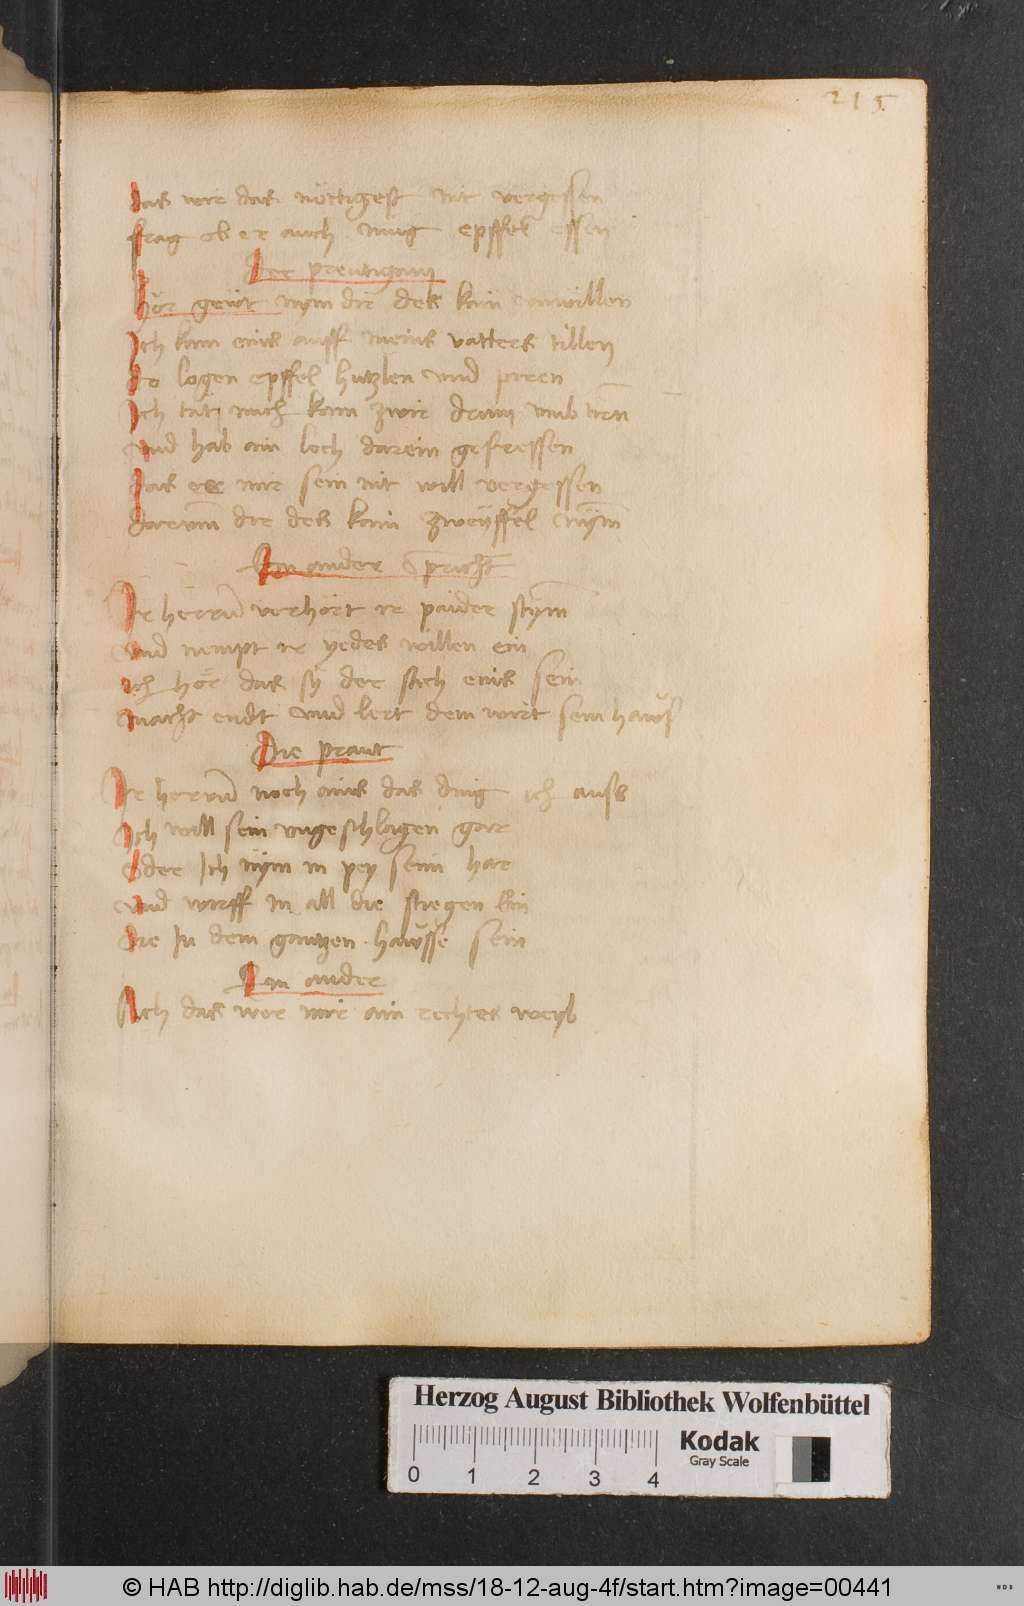 215
das wir das nöttigest nit vergessen
frag ob er auch mug epffel essen
Der preutigam
Hör geüt nym dir des kain unwillen
Ich kam eins auff meins vatters tillen
do logen epffel hutzlen und piren
Ich tät mich kam zwir drum umb
und hab ain loch darein gefressen
das er mir sein nit will vergessen
darumb die des kain zweÿffel nÿm
Ein ander spricht
Ir herrn verhört ir paider stym
und nempt ir yedes willen ein
ich hör das sÿ der sach eins sein
macht endt und lert dem wirt sein haws
Die praut
Ir herrn noch ains das ding ich auss
Ich will sein ungeschlagen gar
Oder Ich nÿm in pey seim har
und wirff in all die stiegen ein
die In dem gantzen hawsse sein
Ein ander
Ach das wer mir ain rechtes weyb
Herzog August Bibliothek Wolfenbüttel
0 1 2 3 4
Kodak
Gray Scale
© HAB http://diglib.hab.de/mss/18-12-aug-4f/start.htm?image=00441